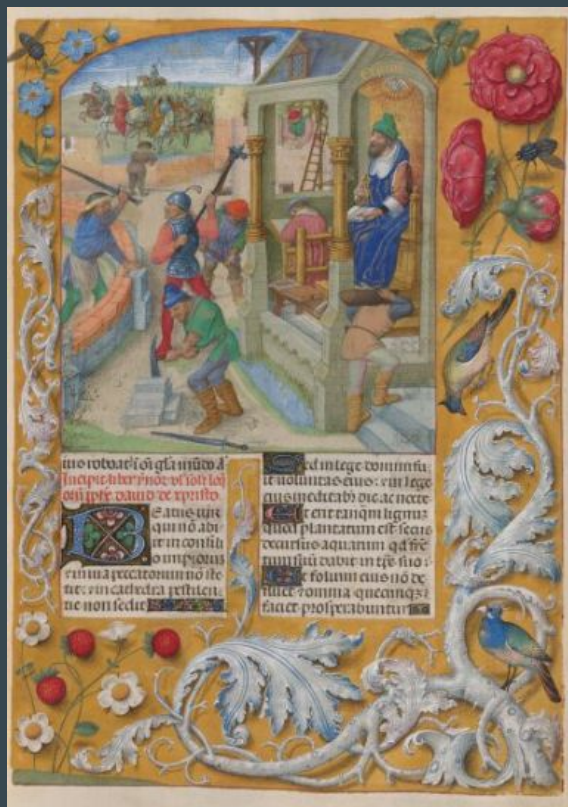 Incipit liber ymnor
Beatus vir
qui nō abi
it in consili
o impiorū
⁊ in via peccatorum nō ste
tit: ⁊ in cathedra pestilen
tie non sedit
Sed in lege domini fu
it voluntas eius: ⁊ in lege
eius meditabit̄ die ac nocte
Et erit tanq̄m lignum
quod plantatum est secus
decursus aquarum qd̄ fru
ctum suū dabit in tp̄e suo:
Et folium eius nō de
fluet: ⁊ omnia quecunq̄
faciet prosperabuntur